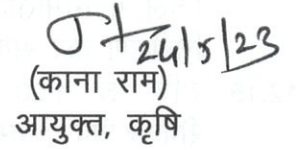 24/5/23
(काना राम)
आयुक्त, कृषि